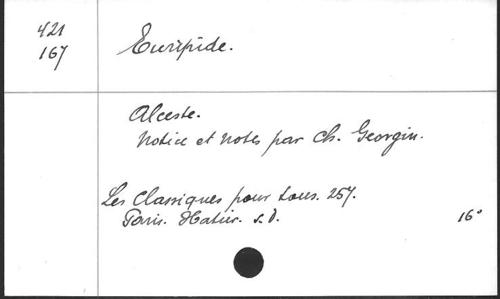 421
167
Euripide.
Alceste.
Notice et notes par Ch. Georgin.
Les Classiques pour tous. 257.
Paris. Hatier. s.d.
16°